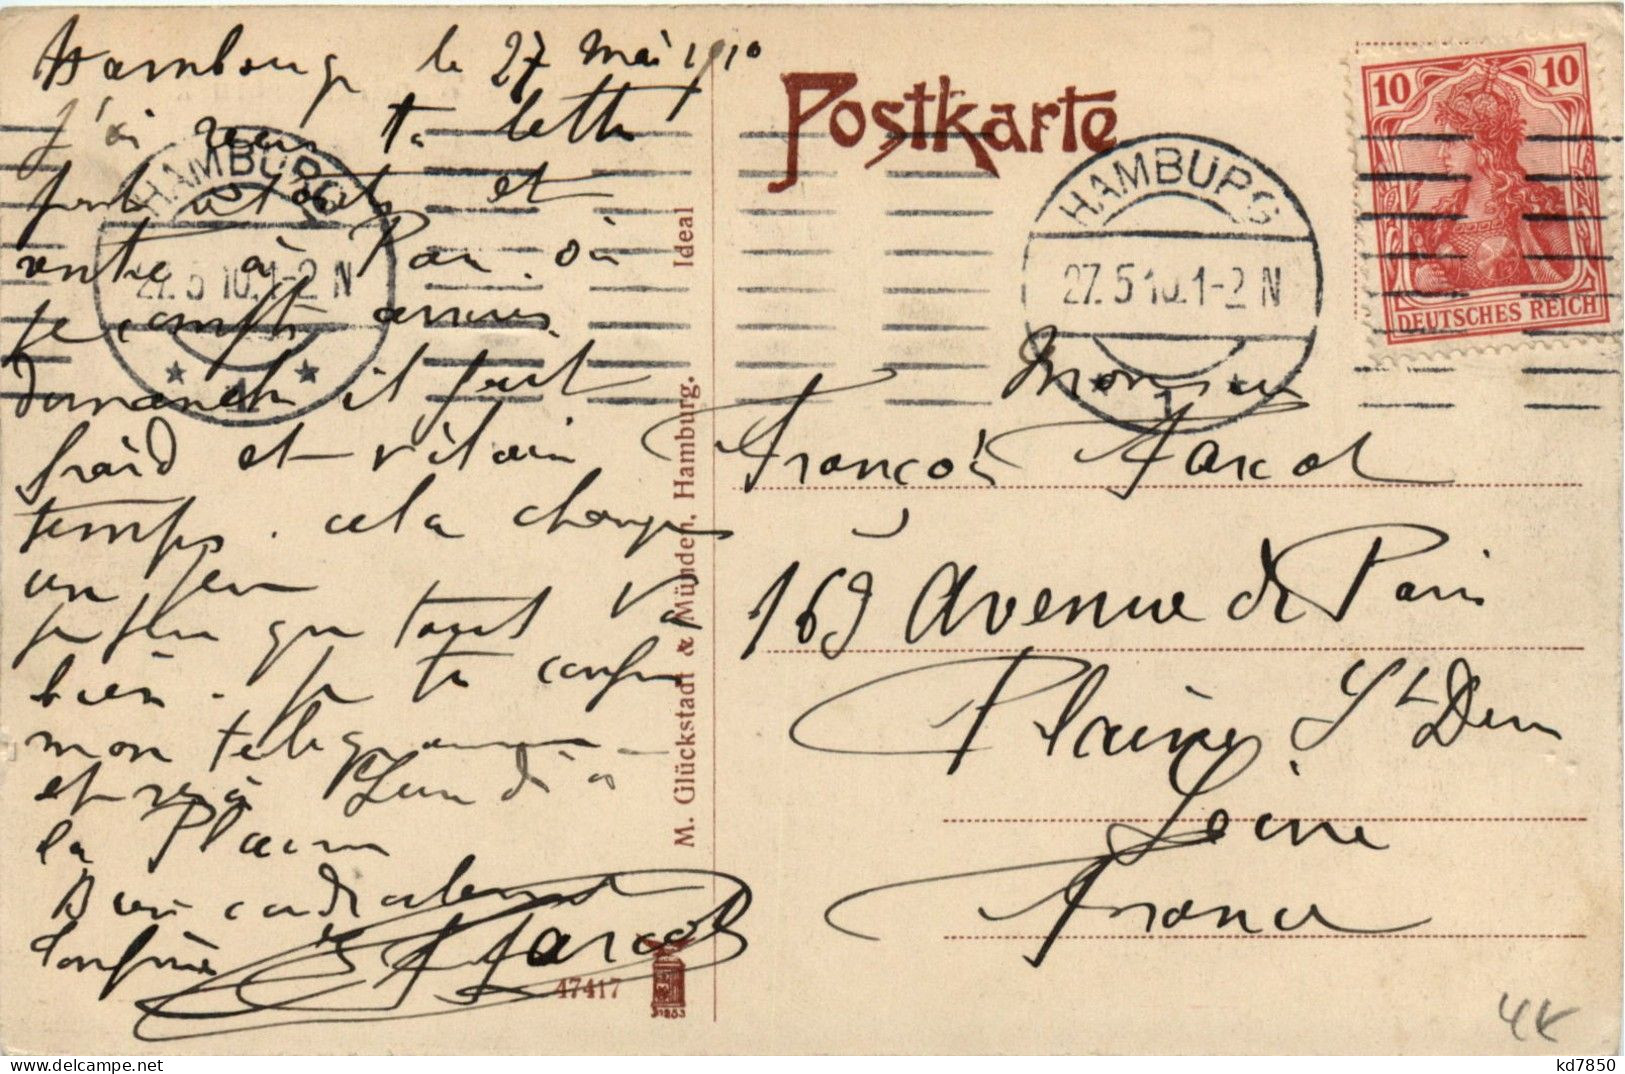 Hambourg le 27 mai 1910
J'ai reçu ta lettre
et
rentre à Paris où
je compte arriver
Dimanche il fait
froid et vilain
temps. cela change
un peu
que tout va
bien. je te confirme
mon telegramme
et Lundi à
la Plaine
Bien cordialement
Ton frère
Harcot
Postkarte
HAMBURG
27.5.10.1-2 N
* 1 *
HAMBURG
27.5.10.1-2 N
* 1 *
10 10
DEUTSCHES REICH
M. Glückstadt & Münden, Hamburg. Ideal
Monsieur
François Harcot
169 Avenue de Paris
Plaine St Denis
Seine
France
47417
4K
kd7850